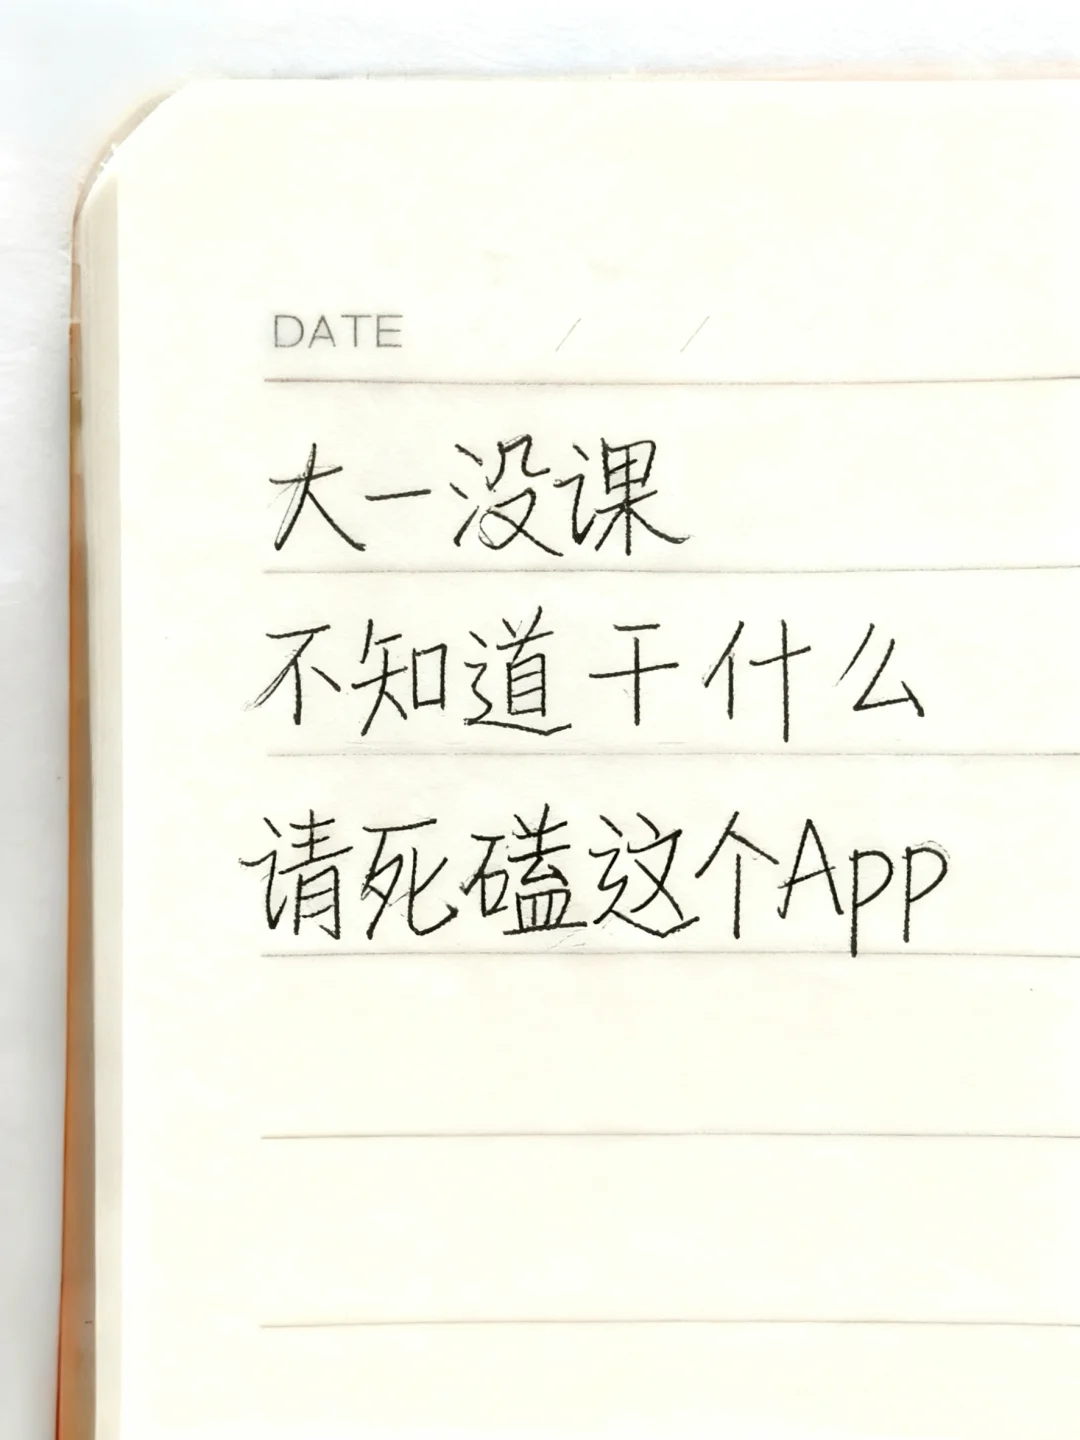 DATE / /
大一没课
不知道干什么
请死磕这个App